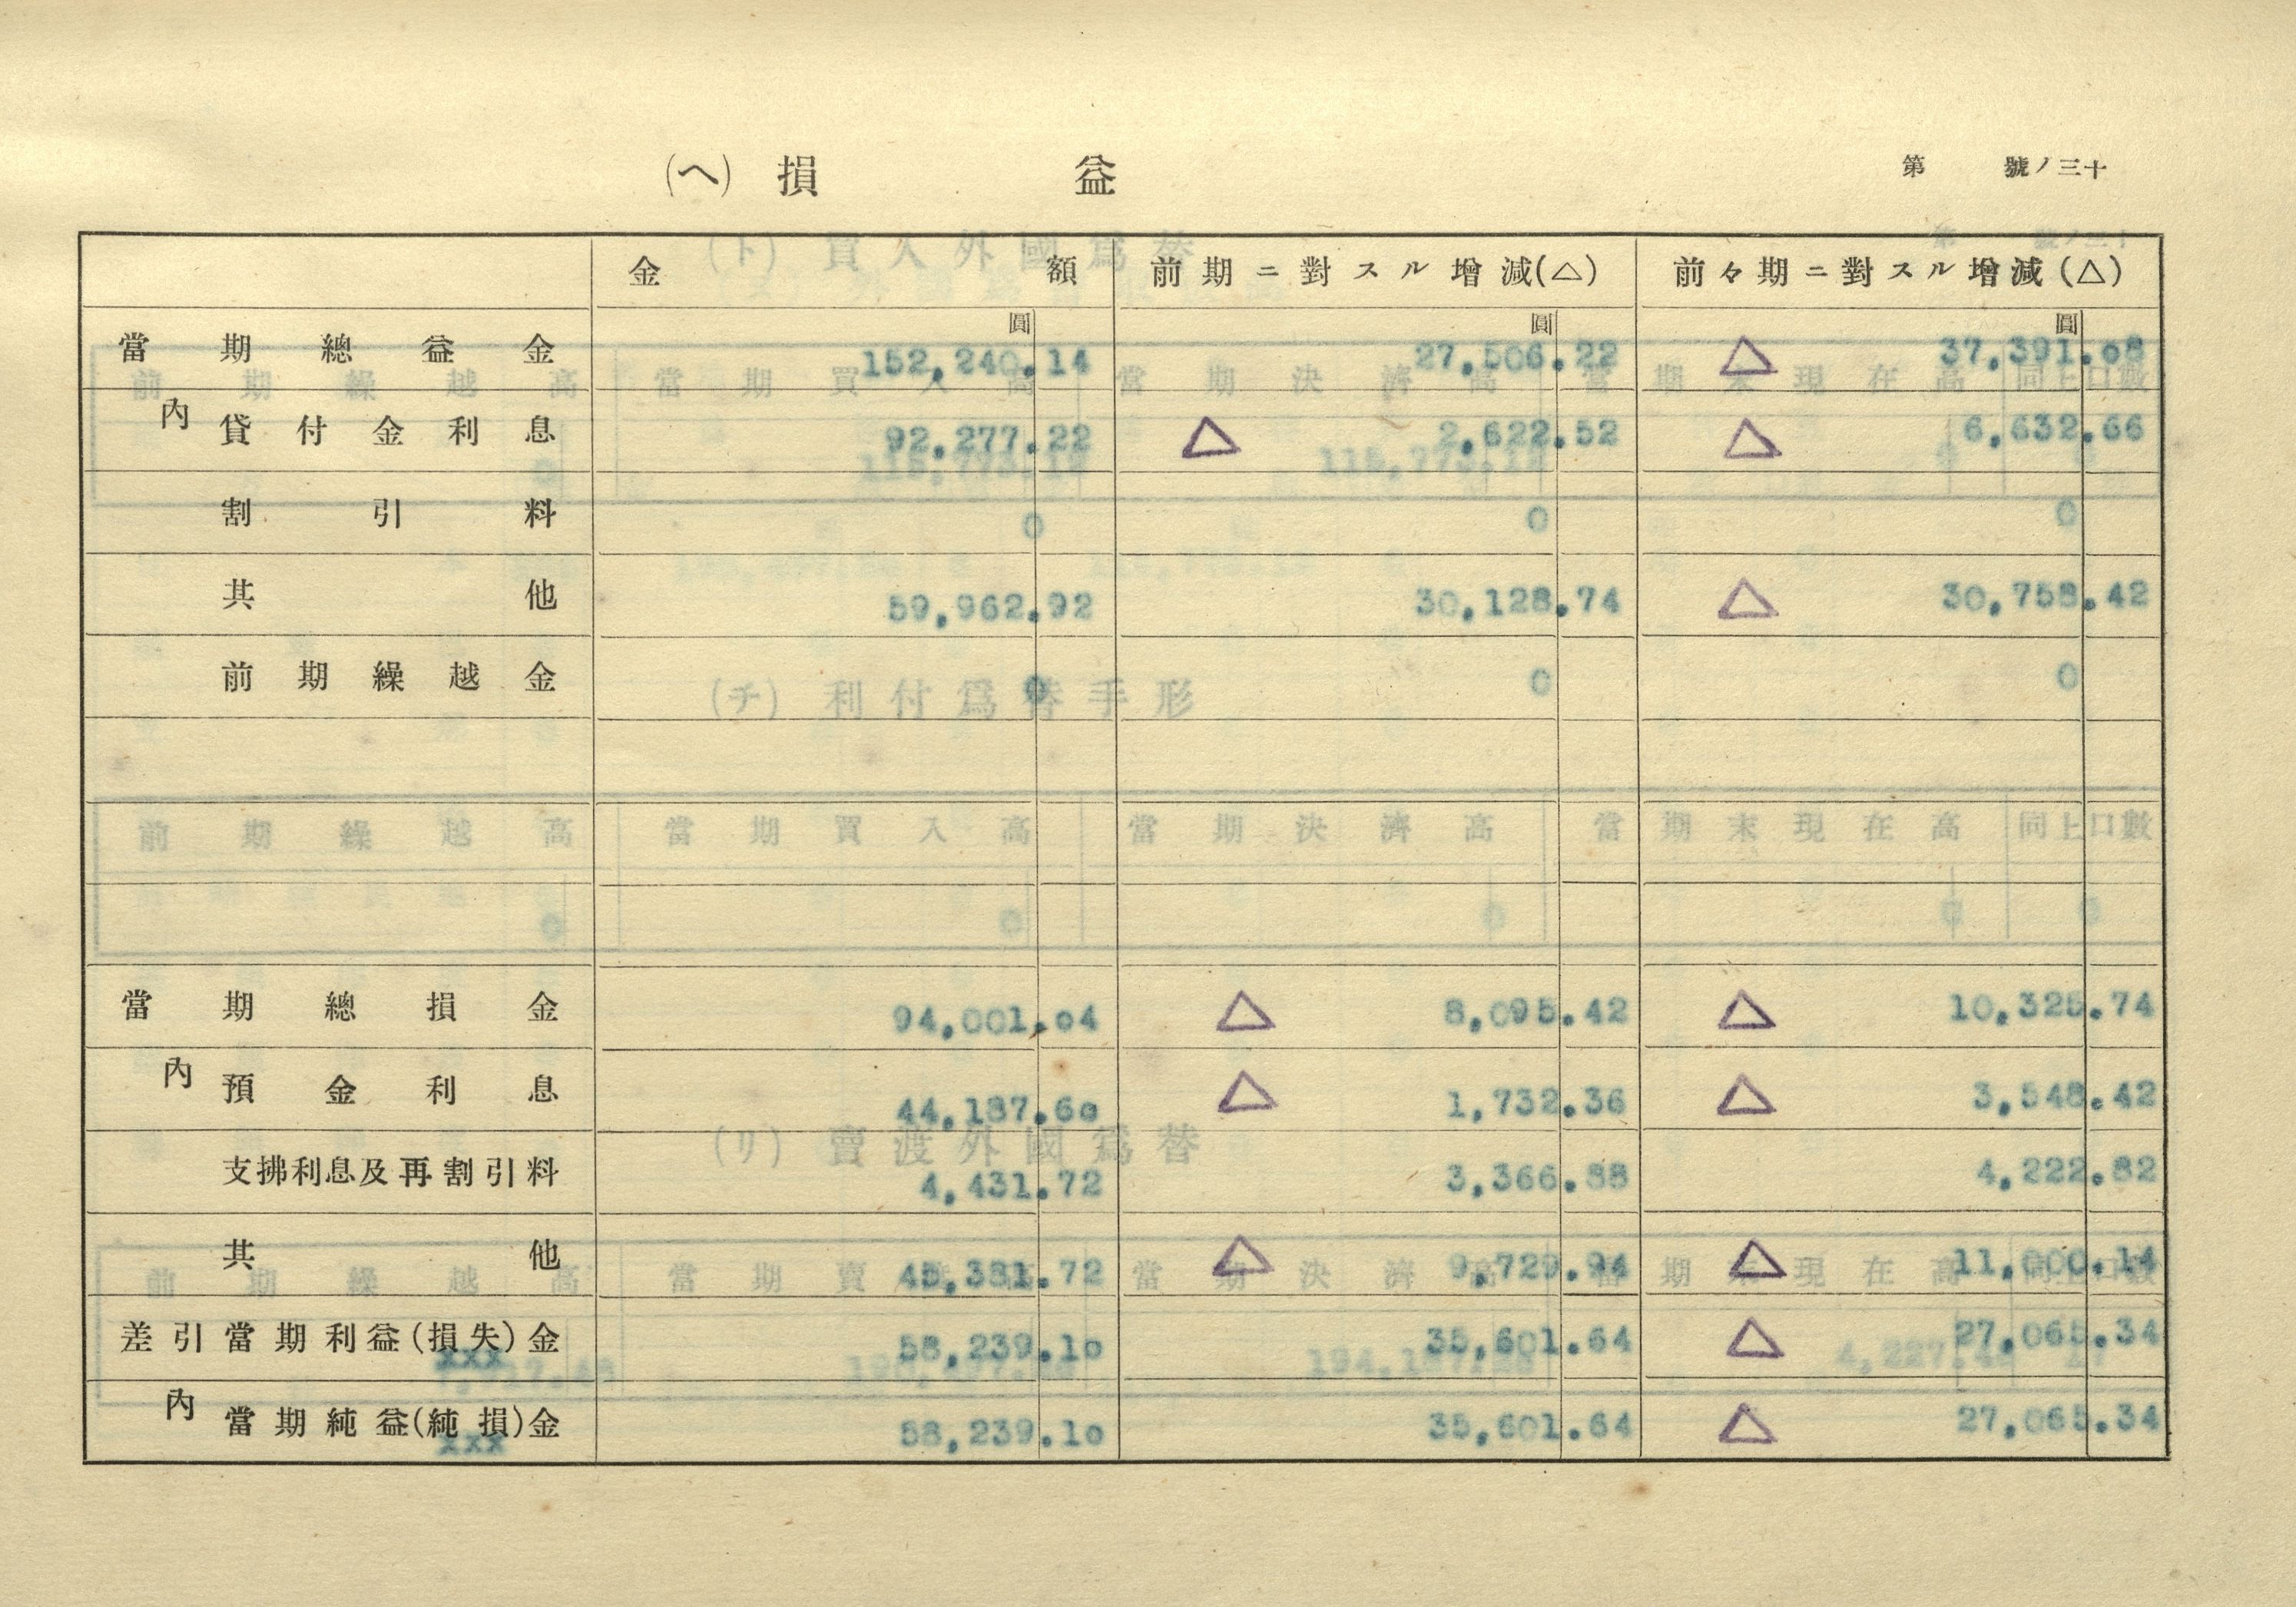 (ヘ) 損益
第 號ノ三十
金額 前期ニ對スル增減(△) 前々期ニ對スル增減(△)
圓 圓 圓
當期總益金 152,240.14 27,506.22 △ 37,391.08
內 貸付金利息 92,277.22 △ 2,622.52 △ 6,632.66
割引料 0 0 0
其他 59,962.92 30,128.74 △ 30,758.42
前期繰越金 0 0 0
當期總損金 94,001.04 △ 8,095.42 △ 10,325.74
內 預金利息 44,187.60 △ 1,732.36 △ 3,548.42
支拂利息及再割引料 4,431.72 3,366.88 4,222.82
其他 45,381.72 △ 9,729.94 △ 11,000.14
差引當期利益(損失)金 58,239.10 35,601.64 △ 27,065.34
xxx
內 當期純益(純損)金 58,239.10 35,601.64 △ 27,065.34
xxx